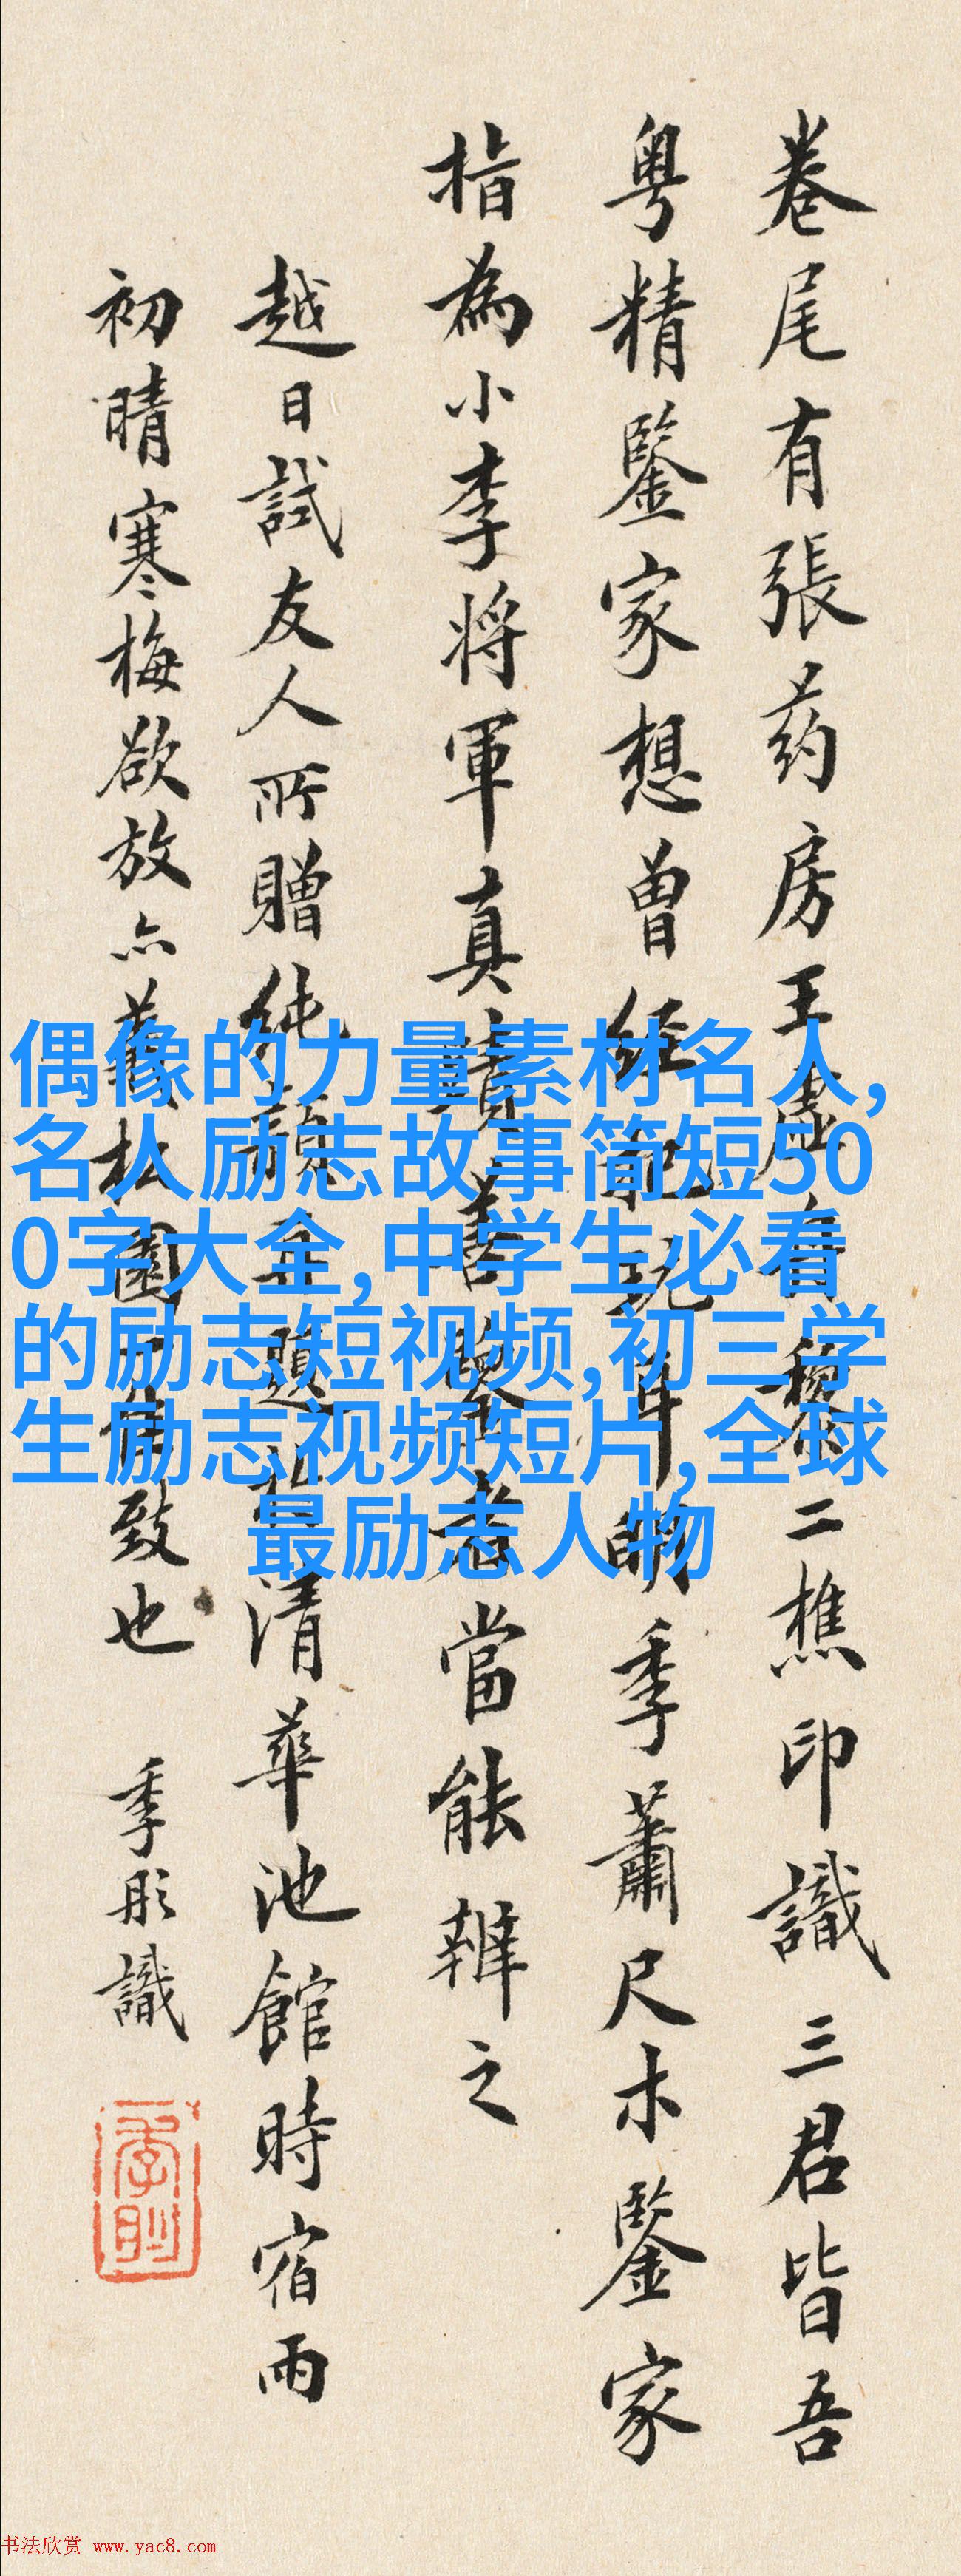 卷尾有張药房王虛舟黎二樵印識三君皆吾
粤精鑒家想曾經把玩耳明季蕭尺木鑒家
指為小李将軍真蹟善鑒者當能辨之
越日試友人所贈純題於清華池館時宿雨
初晴寒梅欲放亦園致也 季彤識
偶像的力量素材名人,
名人励志故事简短50
0字大全,中学生必看
的励志短视频,初三学
生励志视频短片,全球
最励志人物
书法欣赏 www.yac8.com